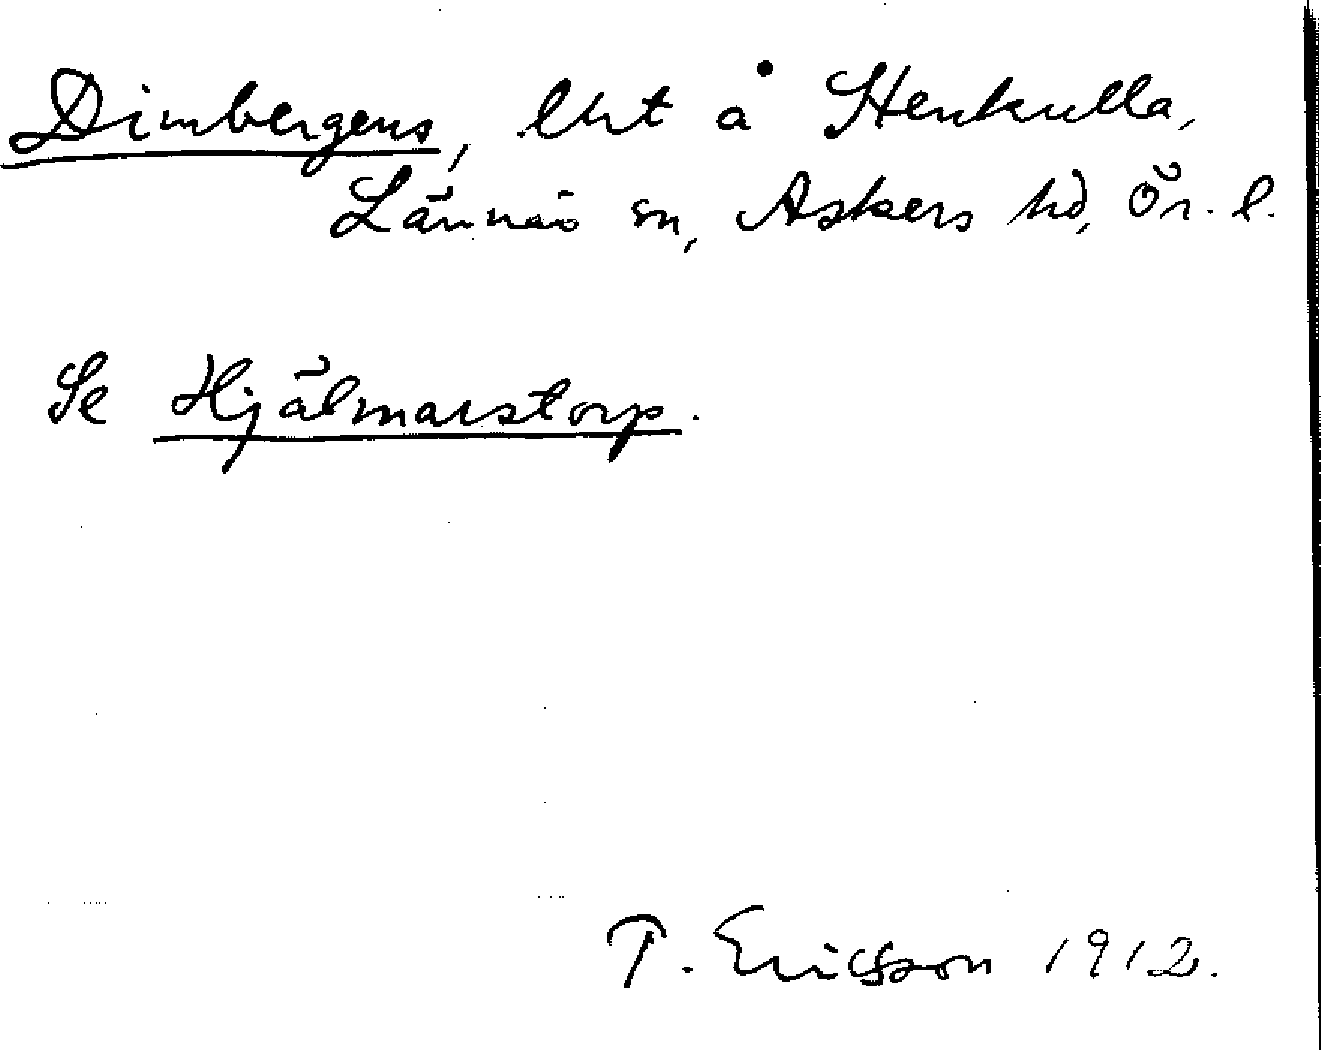 Dimbergens, lht å Stenkulla,
Lännäs sn, Askers hd, Ör. l.
Se Hjälmarstorp.
T. Ericsson 1912.